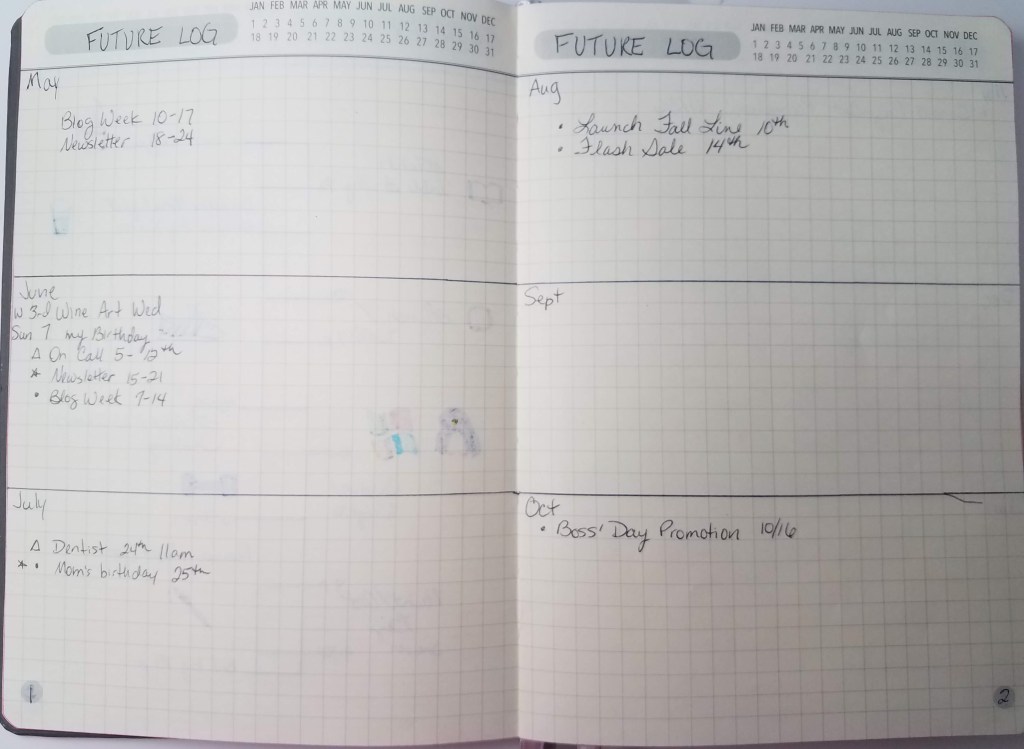 FUTURE LOG
JAN FEB MAR APR MAY JUN JUL AUG SEP OCT NOV DEC
1 2 3 4 5 6 7 8 9 10 11 12 13 14 15 16 17
18 19 20 21 22 23 24 25 26 27 28 29 30 31
May
Blog Week 10-17
Newsletter 18-24
June
W 3rd Wine Art Wed
Sun 7 my Birthday
Δ On Call 5-12th
* Newsletter 15-21
• Blog Week 7-14
July
Δ Dentist 24th 11am
* • Mom's birthday 25th
1
FUTURE LOG
JAN FEB MAR APR MAY JUN JUL AUG SEP OCT NOV DEC
1 2 3 4 5 6 7 8 9 10 11 12 13 14 15 16 17
18 19 20 21 22 23 24 25 26 27 28 29 30 31
Aug
• Launch Fall Line 10th
• Flash Sale 14th
Sept
Oct
• Boss' Day Promotion 10/16
2